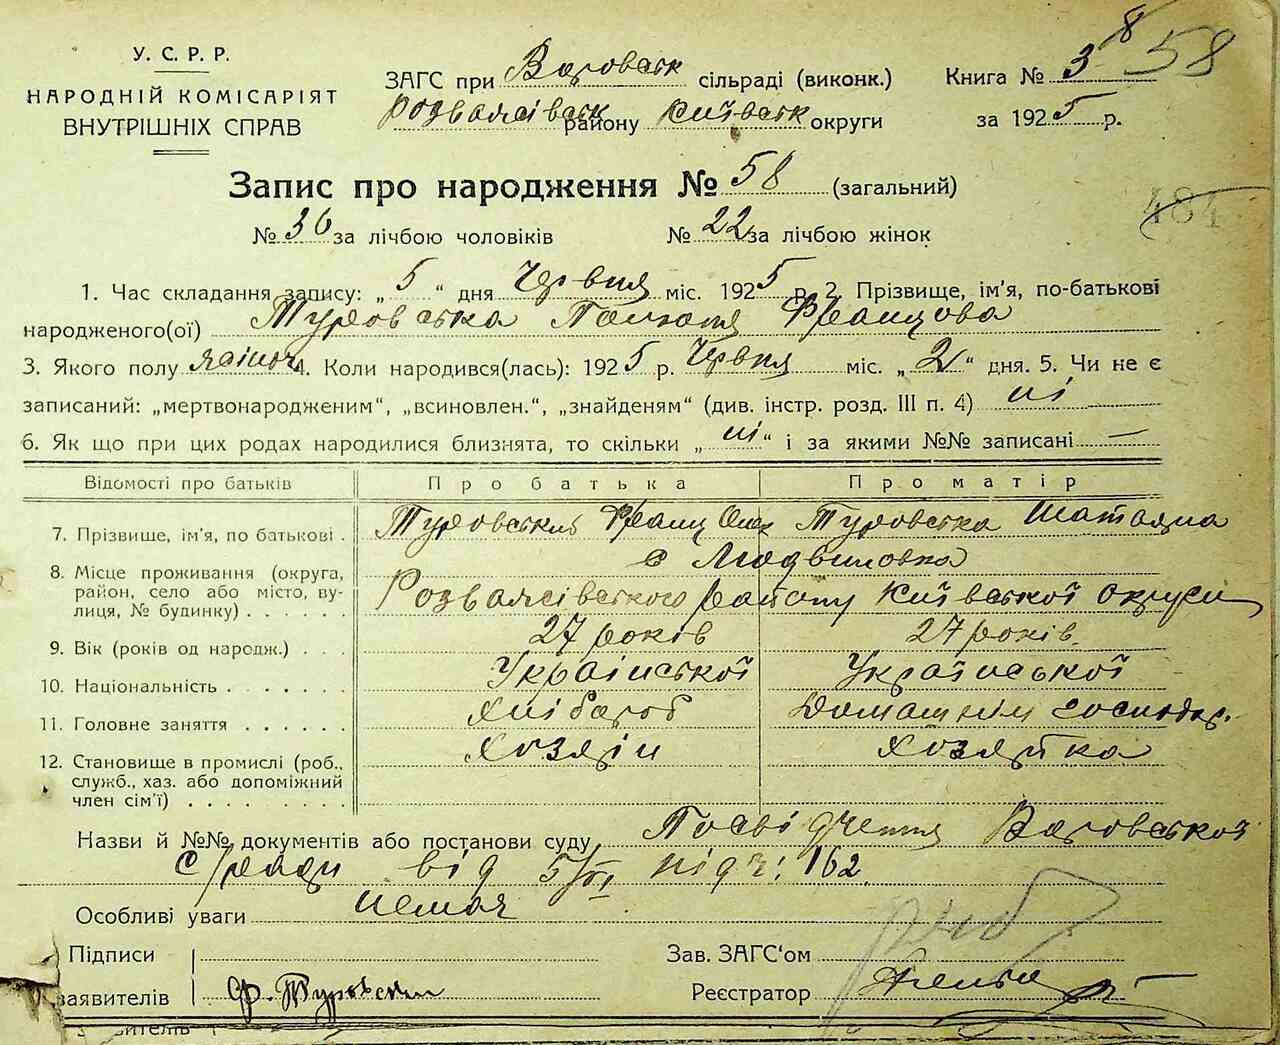 У. С. Р. Р.
НАРОДНІЙ КОМІСАРІЯТ
ВНУТРІШНІХ СПРАВ
ЗАГС при Воровськ сільраді (виконк.)
Розважівськ району Київськ округи
Книга № 3 8 58
за 1925 р.
Запис про народження № 58 (загальний)
№ 36 за лічбою чоловіків № 22 за лічбою жінок
484
1. Час складання запису: „5“ дня Червня міс. 1925 р. 2. Прізвище, ім'я, по-батькові
народженого(ої) Туровська Францова
3. Якого полу жіноч 4. Коли народився(лась): 1925 р. Червня міс. „2“ дня. 5. Чи не є
записаний: „мертвонародженим“, „всиновлен.“, „знайденям“ (див. інстр. розд. III п. 4) ні
6. Як що при цих родах народилися близнята, то скільки „ні“ і за якими №№ записані —
Відомості про батьків Про батька Про матір
7. Прізвище, ім'я, по батькові . Туровський Франц Туровська
8. Місце проживання (округа, район, село або місто, вулиця, № будинку) . . . . . . с Людвиновка
Розважівського району Київської округи
9. Вік (років од народж.) . . . 27 років 27 років
10. Національність . . . . . . . Української Української
11. Головне заняття . . . . . . Хлібороб Домашнім господар.
12. Становище в промислі (роб., служб., хаз. або допоміжний член сім'ї) . . . . . . . . . Хозяїн Хозяйка
Назви й №№ документів або постанови суду Посвідчення Воровської
с/ради від 5/VI під ч: 162
Особливі уваги немає
Підписи
заявителів Ф. Туровский
Зав. ЗАГС‘ом
Реєстратор